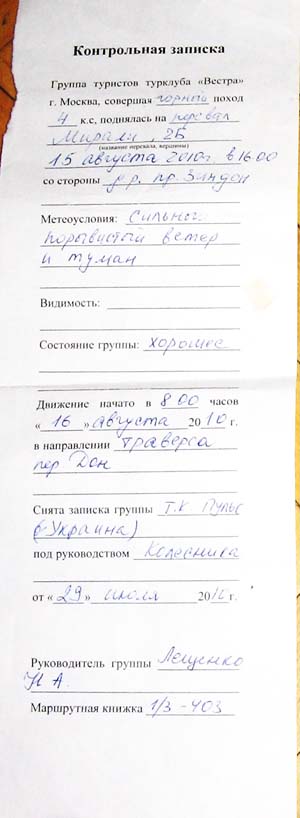 Контрольная записка
Группа туристов турклуба «Вестра»
г. Москва, совершая горный поход
4 к.с, поднялась на перевал
Мирали, 2Б
(название перевала, вершины)
15 августа 2010г. в 16.00
со стороны
Метеоусловия: Сильный
порывистый ветер
и туман
Видимость:
Состояние группы: хорошее
Движение начато в 8 00 часов
«16» августа 2010 г.
в направлении траверса
пер Дон
Снята записка группы Т.К Пульс
(Украина)
под руководством Колесника
от «29» июля 2010 г.
Руководитель группы Лещенко
Н А.
Маршрутная книжка 1/3-403